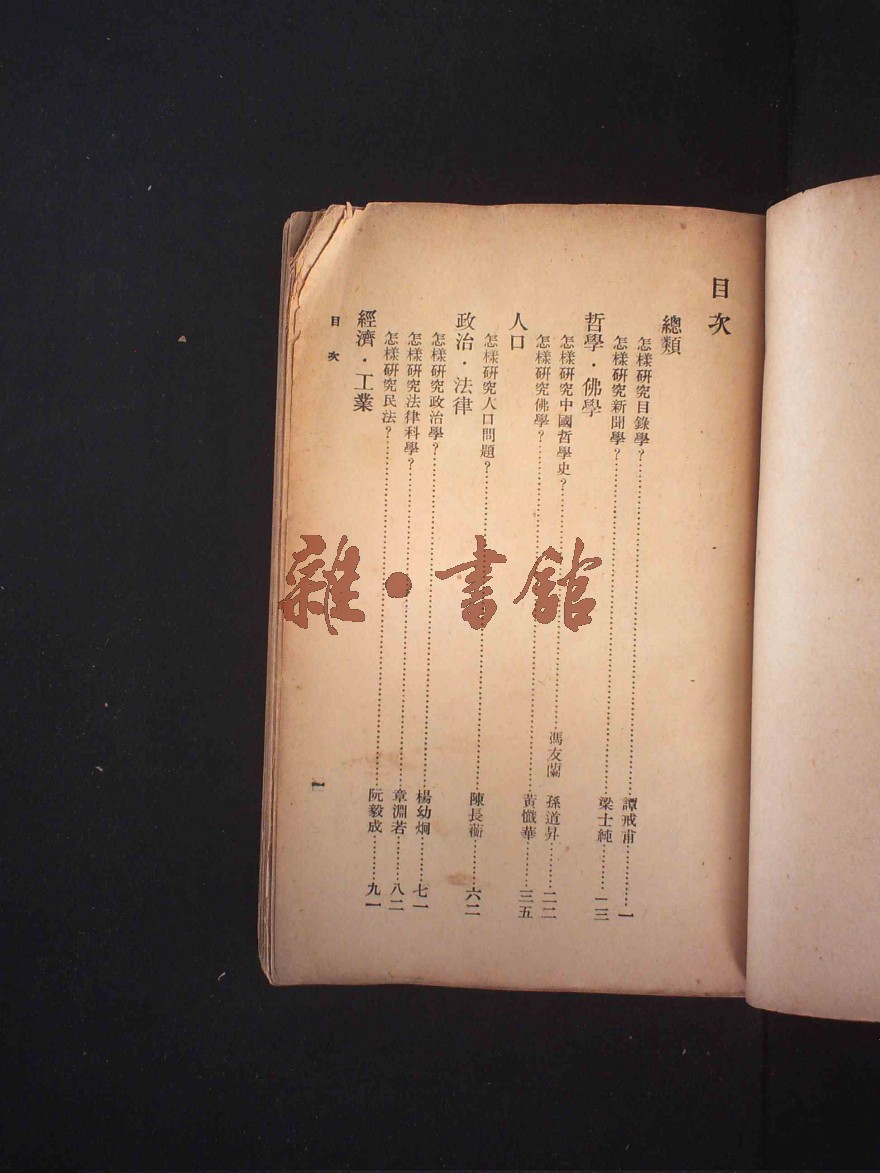 目次
總類
怎樣研究目錄學？……譚戒甫……一
怎樣研究新聞學？……梁士純……一三
哲學・佛學
怎樣研究中國哲學史？……馮友蘭 孫道昇……二二
怎樣研究佛學？……黃懺華……三五
人口
怎樣研究人口問題？……陳長蘅……六二
政治・法律
怎樣研究政治學？……楊幼炯……七一
怎樣研究法律科學？……章淵若……八二
怎樣研究民法？……阮毅成……九一
經濟・工業
目次
一
雜・書館